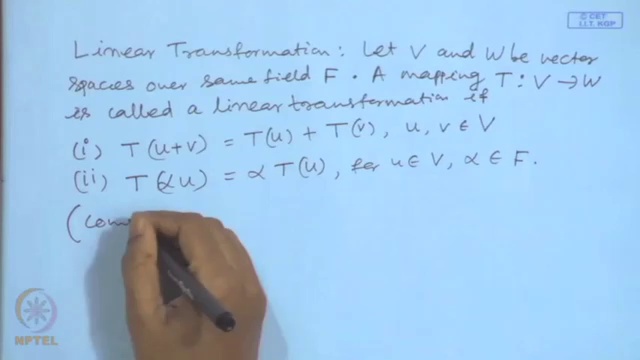 © CET
I.I.T. KGP
Linear Transformation: Let V and W be vector
spaces over same field F. A mapping T: V → W
is called a linear transformation if
(i) T(u+v) = T(u) + T(v), u, v ∈ V
(ii) T(αu) = α T(u), for u ∈ V, α ∈ F.
(com
NPTEL